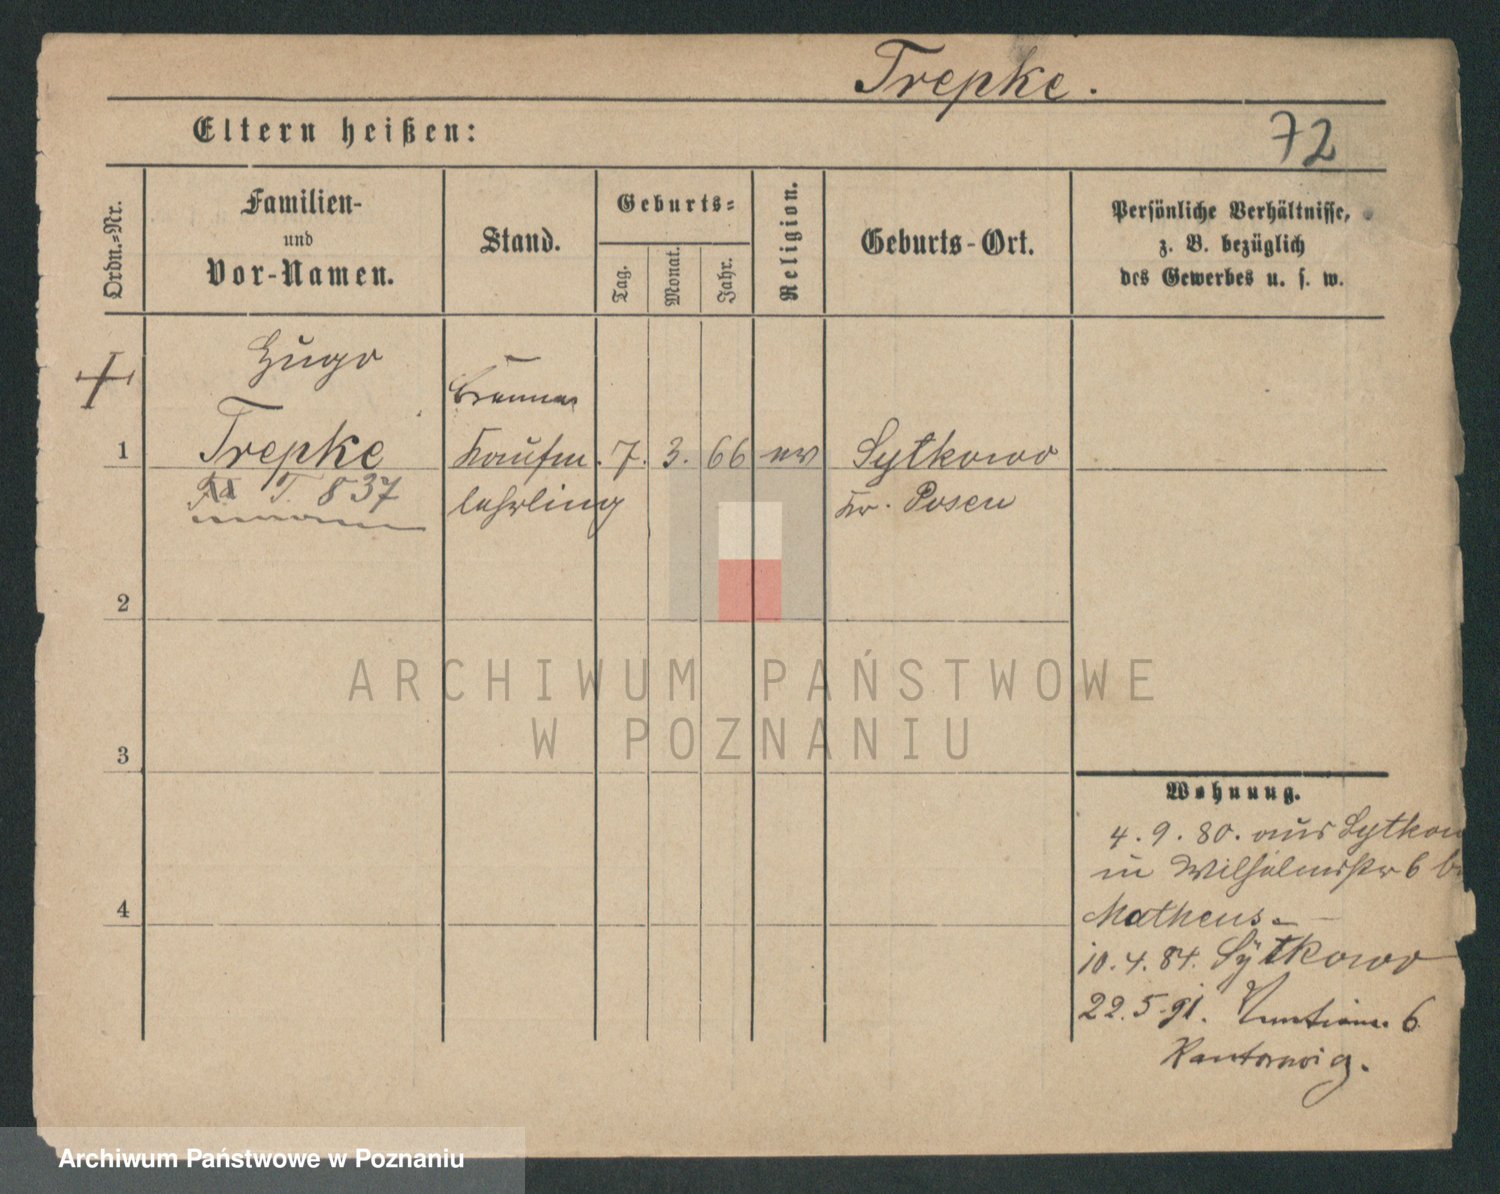 Trepke.
72
Eltern heißen:
Ordn.-Nr.
Familien-
und
Vor-Namen.
Stand.
Geburts-
Tag.
Monat.
Jahr.
Religion.
Geburts-Ort.
Persönliche Verhältnisse,
z. B. bezüglich
des Gewerbes u. s. w.
Hugo
1 Trepke Kaufm. 7. 3. 66 ev Sytkowo
T. 837 lehrling Kr. Posen
2
3
4
Wohnung.
4. 9. 80. aus Sytkow
in Wilhelmstr 6 b
Matheus
10. 4. 84. Sytkowo
22. 5. 91. 6
Kantorowicz.
ARCHIWUM PAŃSTWOWE
W POZNANIU
Archiwum Państwowe w Poznaniu